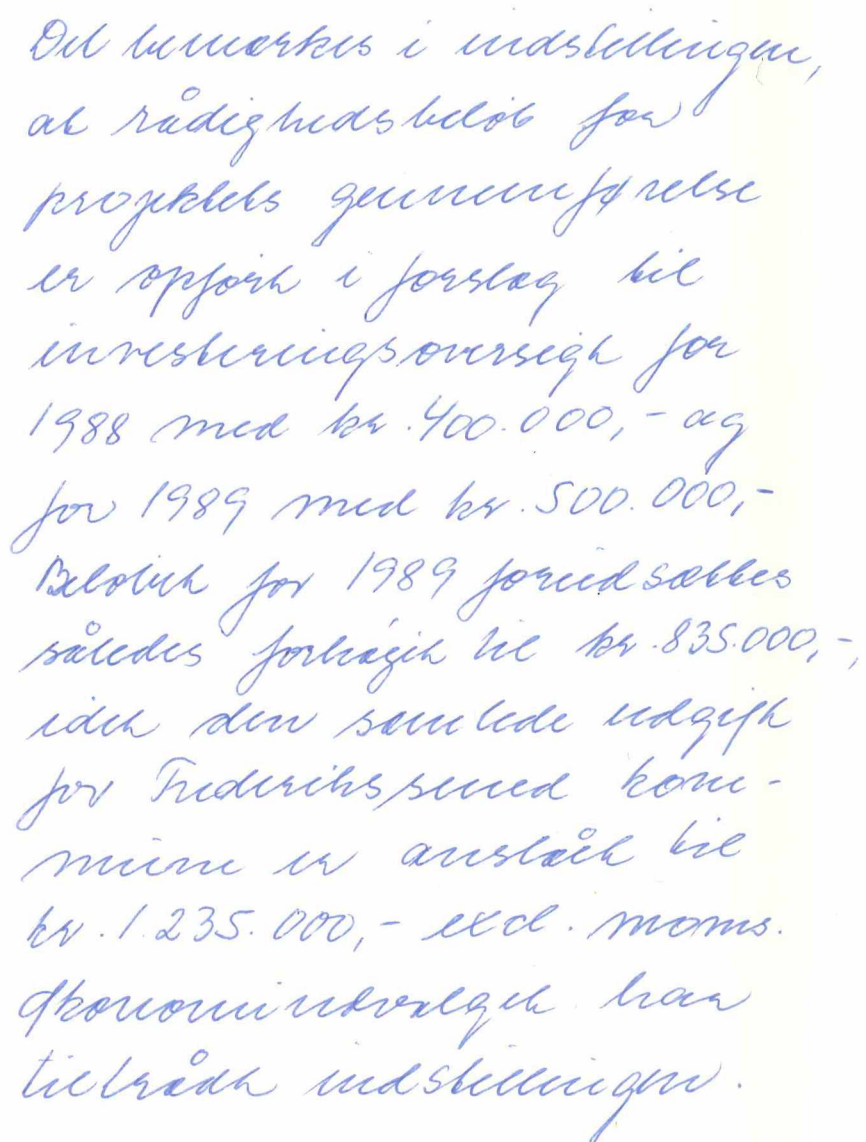 Det bemærkes i indstillingen,
at rådighedsbeløb for
projektets gennemførelse
er opført i forslag til
investeringsoversigt for
1988 med kr. 400.000,- og
for 1989 med kr. 500.000,-
Beløbet for 1989 forudsættes
således forhøjet til kr. 835.000,-,
idet den samlede udgift
for Frederikssund kom-
mune er anslået til
kr. 1.235.000,- excl. moms.
Økonomiudvalget har
tiltrådt indstillingen.